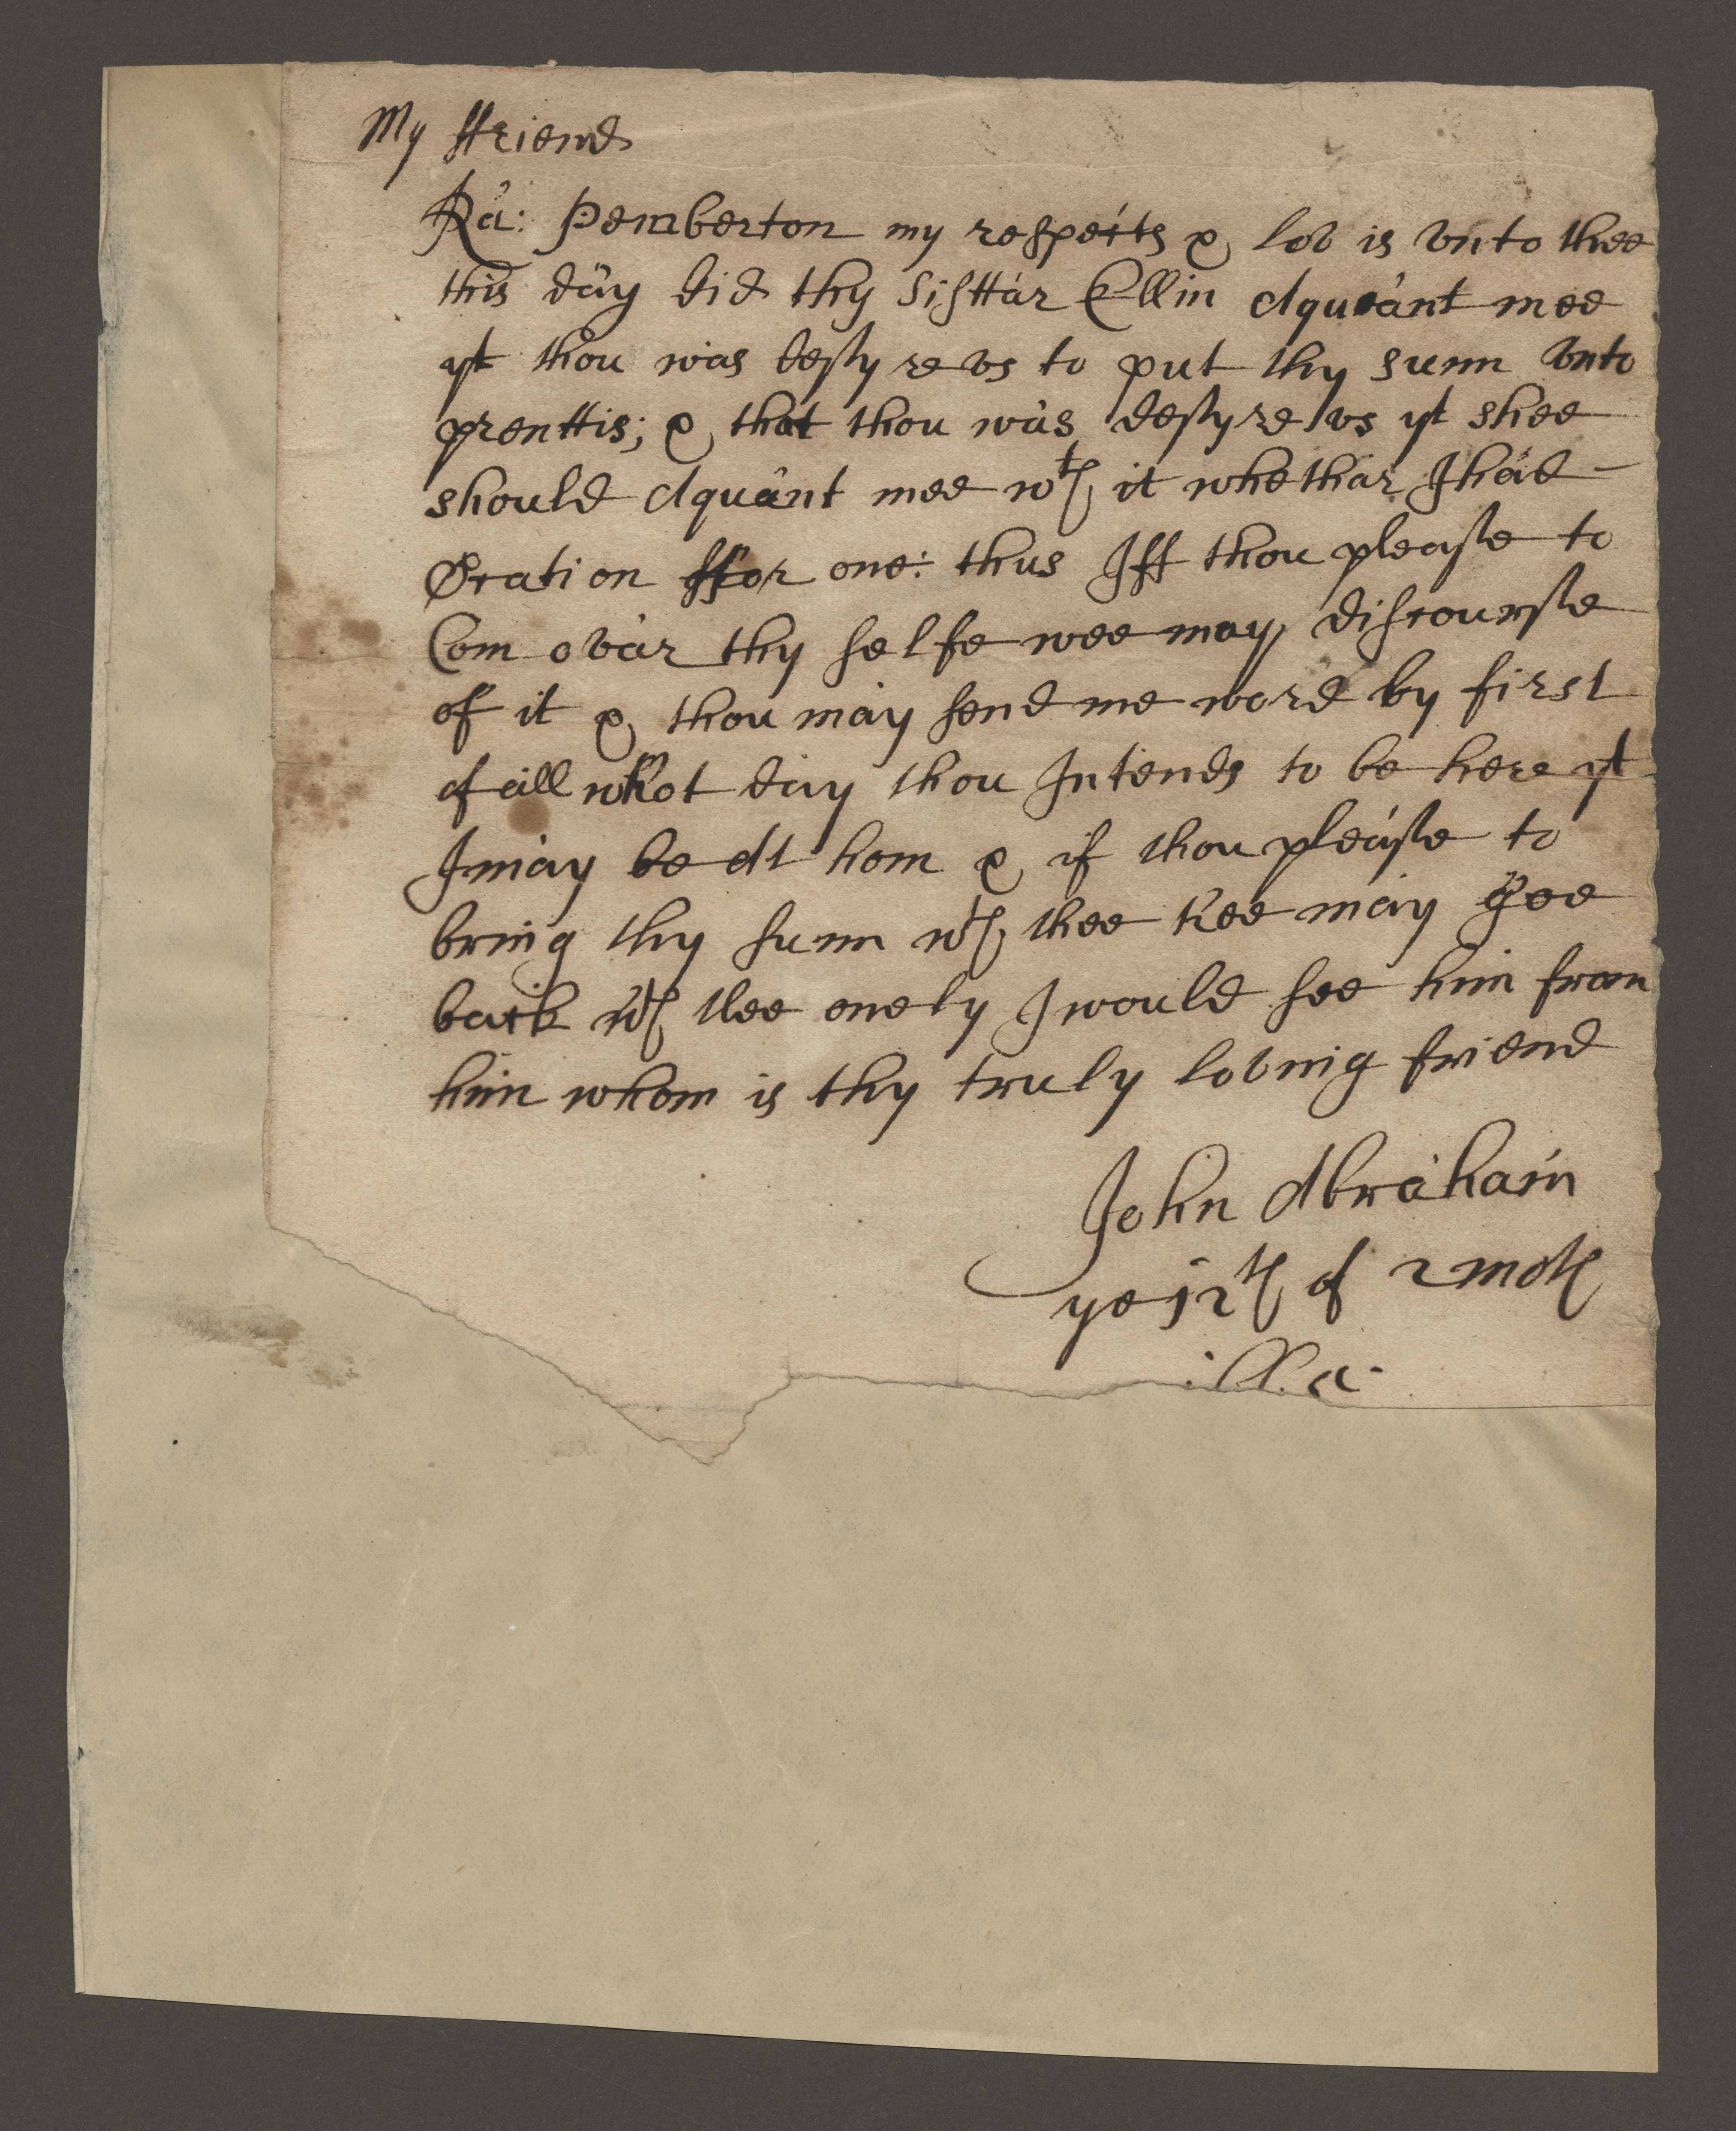 My ffriend
Ra: Pemberton my respects & lov is vnto thee
this day did thy Sisttar Ellin Aqueant mee
yt thou was desyrevs to put thy sunn vnto
prenttis; & that thou was desyrevs yt shee
should Aquant mee wth it whethar I had
Ocation ffor one: thus Iff thou pleasse to
Com ovar thy selfe wee may discoursse
of it & thou may send me word by first
of all whot day thou Intends to be here yt
I may be At hom & if thou pleasse to
bring thy sunn wth thee hee may goe
back wth thee onely I would see him from
him whom is thy truly loving friend
John Abraham
ye 12th of 2 moth